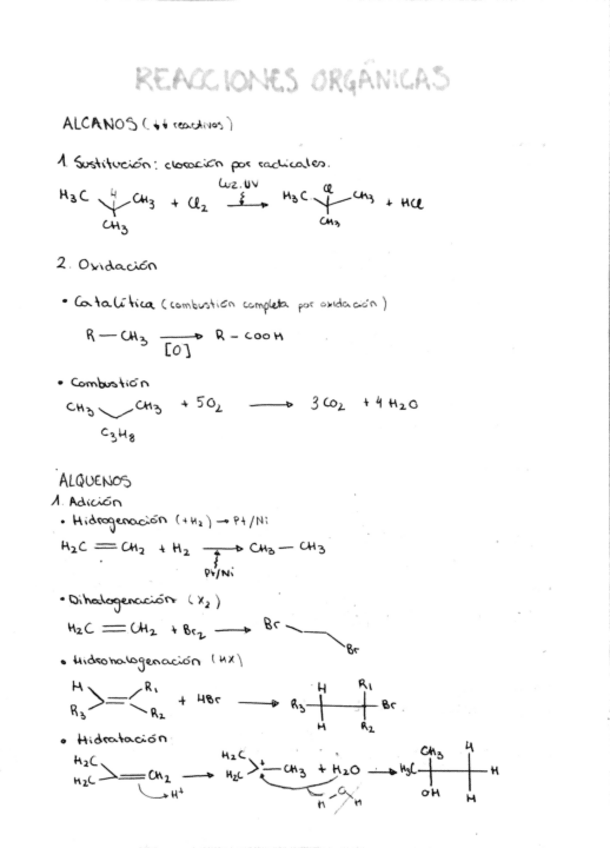 REACCIONES ORGÁNICAS
ALCANOS (↓↓ reactivos)
1. Sustitución: cloración por radicales.
H3C H CH3 + Cl2 Luz.UV → H3C Cl CH3 + HCl
CH3 CH3
2. Oxidación
• Catalítica (combustión completa por oxidación)
R — CH3 → R - COOH
[O]
• Combustión
CH3 CH3 + 5O2 → 3 CO2 + 4 H2O
C3H8
ALQUENOS
1. Adición
• Hidrogenación (+H2) → Pt/Ni
H2C = CH2 + H2 → CH3 — CH3
Pt/Ni
• Dihalogenación (X2)
H2C = CH2 + Br2 → Br Br
• Hidrohalogenación (HX)
H R1 H R1
R3 R2 + HBr → R3 Br
H R2
• Hidratación
H2C H2C CH3 H
H2C = CH2 → H2C + CH3 + H2O → H3C H
→ H+ H - O H OH H